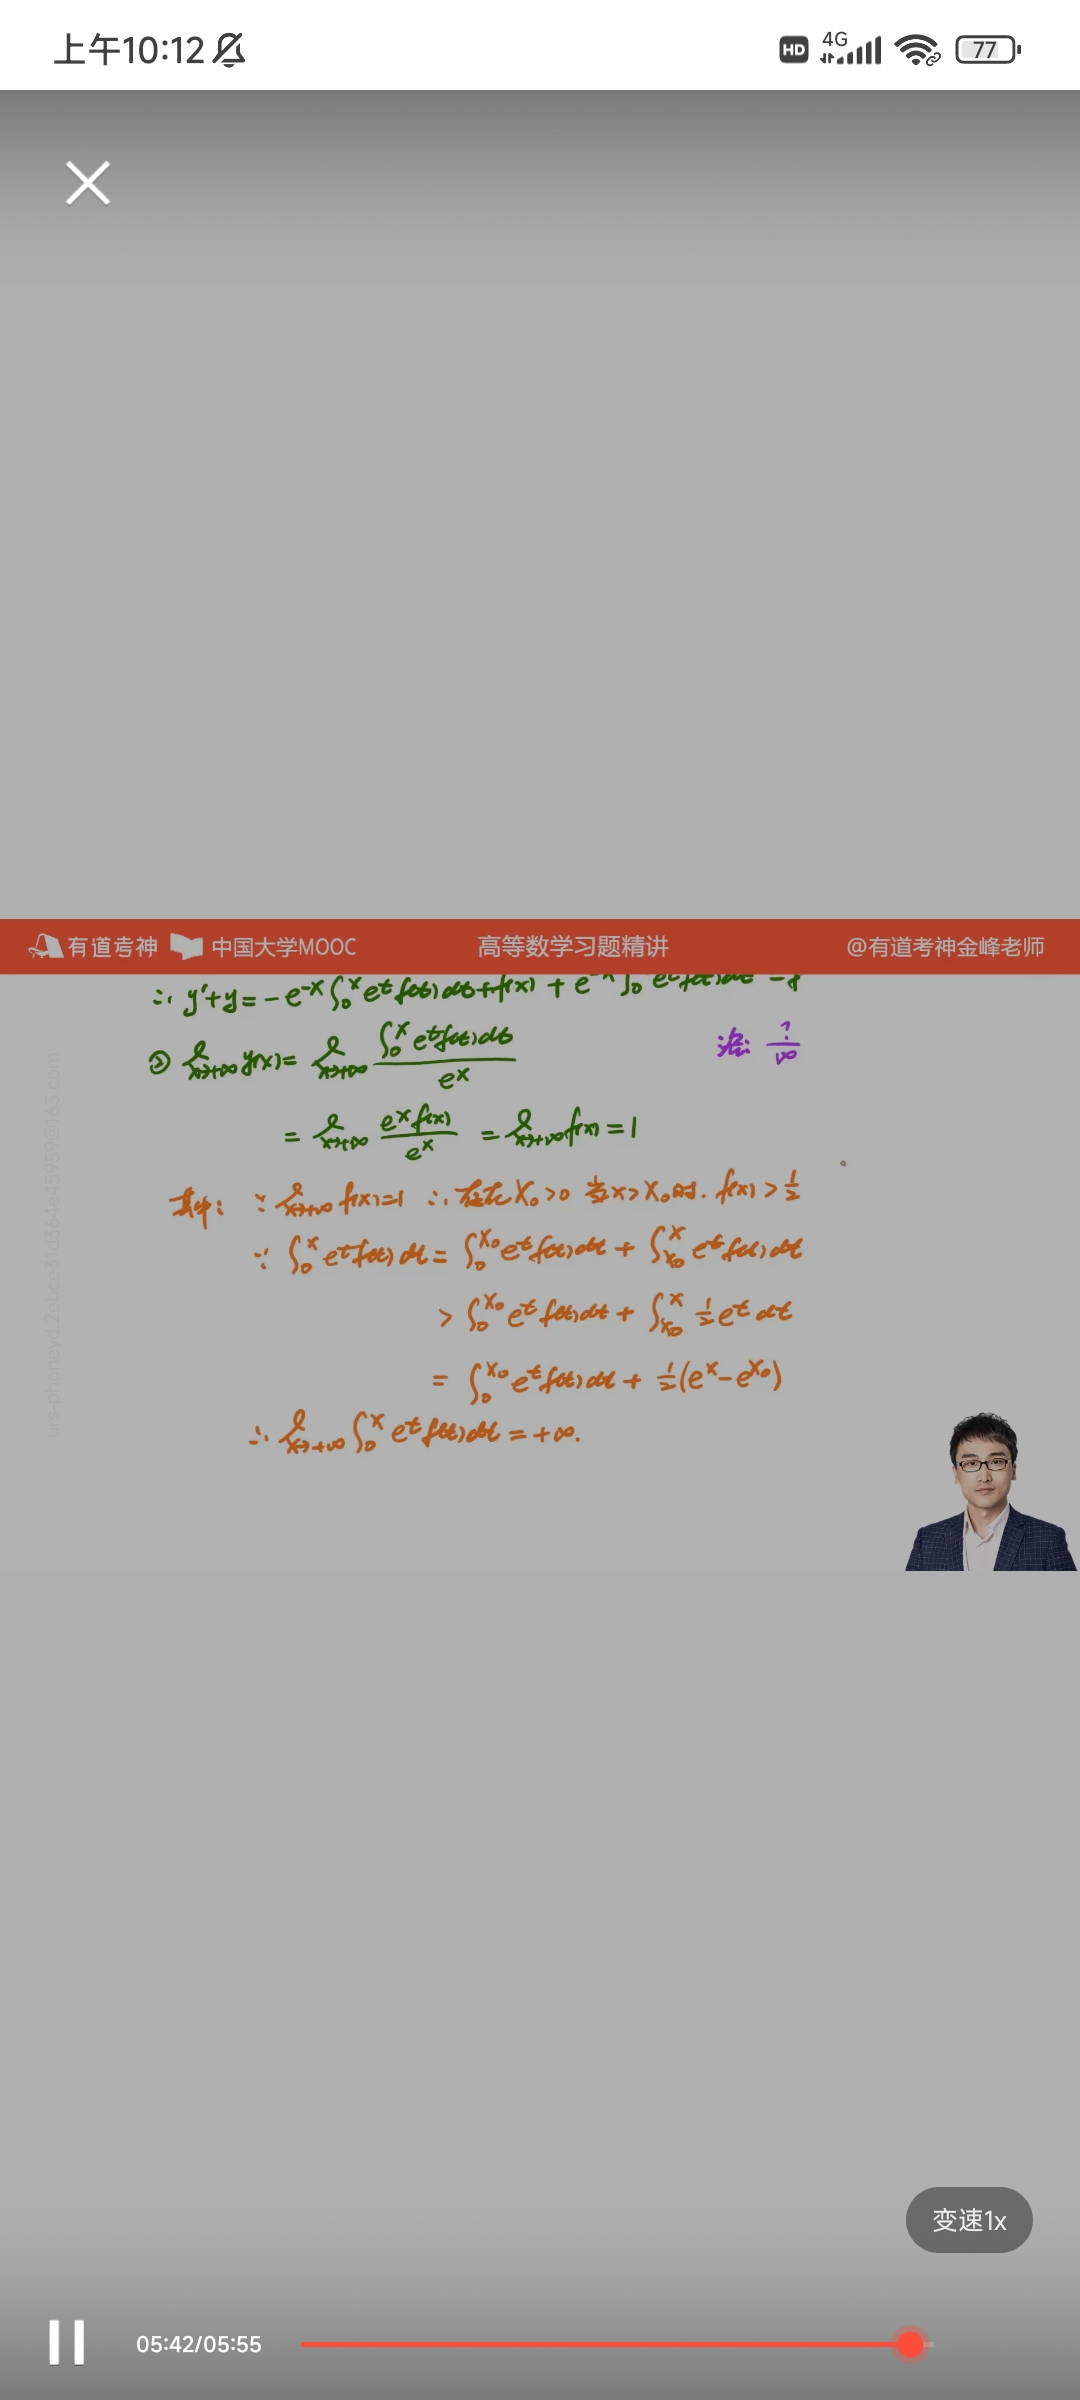 上午10:12
HD 4G 77
有道考神 中国大学MOOC 高等数学习题精讲 @有道考神金峰老师
∴ y'+y=-e^{-x}∫_0^x e^t f(t)dt+f(x) + e^{-x}∫_0 e^t f(t)dt =f
② lim_{x→+∞} y(x)= lim_{x→+∞} \frac{∫_0^x e^t f(t)dt}{e^x} 洛: \frac{?}{∞}
= lim_{x→+∞} \frac{e^x f(x)}{e^x} = lim_{x→+∞} f(x) = 1
其中: ∵ lim_{x→+∞} f(x)=1 ∴ 存在 X_0>0 当x>X_0时. f(x)>\frac{1}{2}
∵ ∫_0^x e^t f(t)dt = ∫_0^{X_0} e^t f(t)dt + ∫_{X_0}^x e^t f(t)dt
> ∫_0^{X_0} e^t f(t)dt + ∫_{X_0}^x \frac{1}{2}e^t dt
= ∫_0^{X_0} e^t f(t)dt + \frac{1}{2}(e^x-e^{X_0})
∴ lim_{x→+∞} ∫_0^x e^t f(t)dt = +∞.
变速1x
05:42/05:55